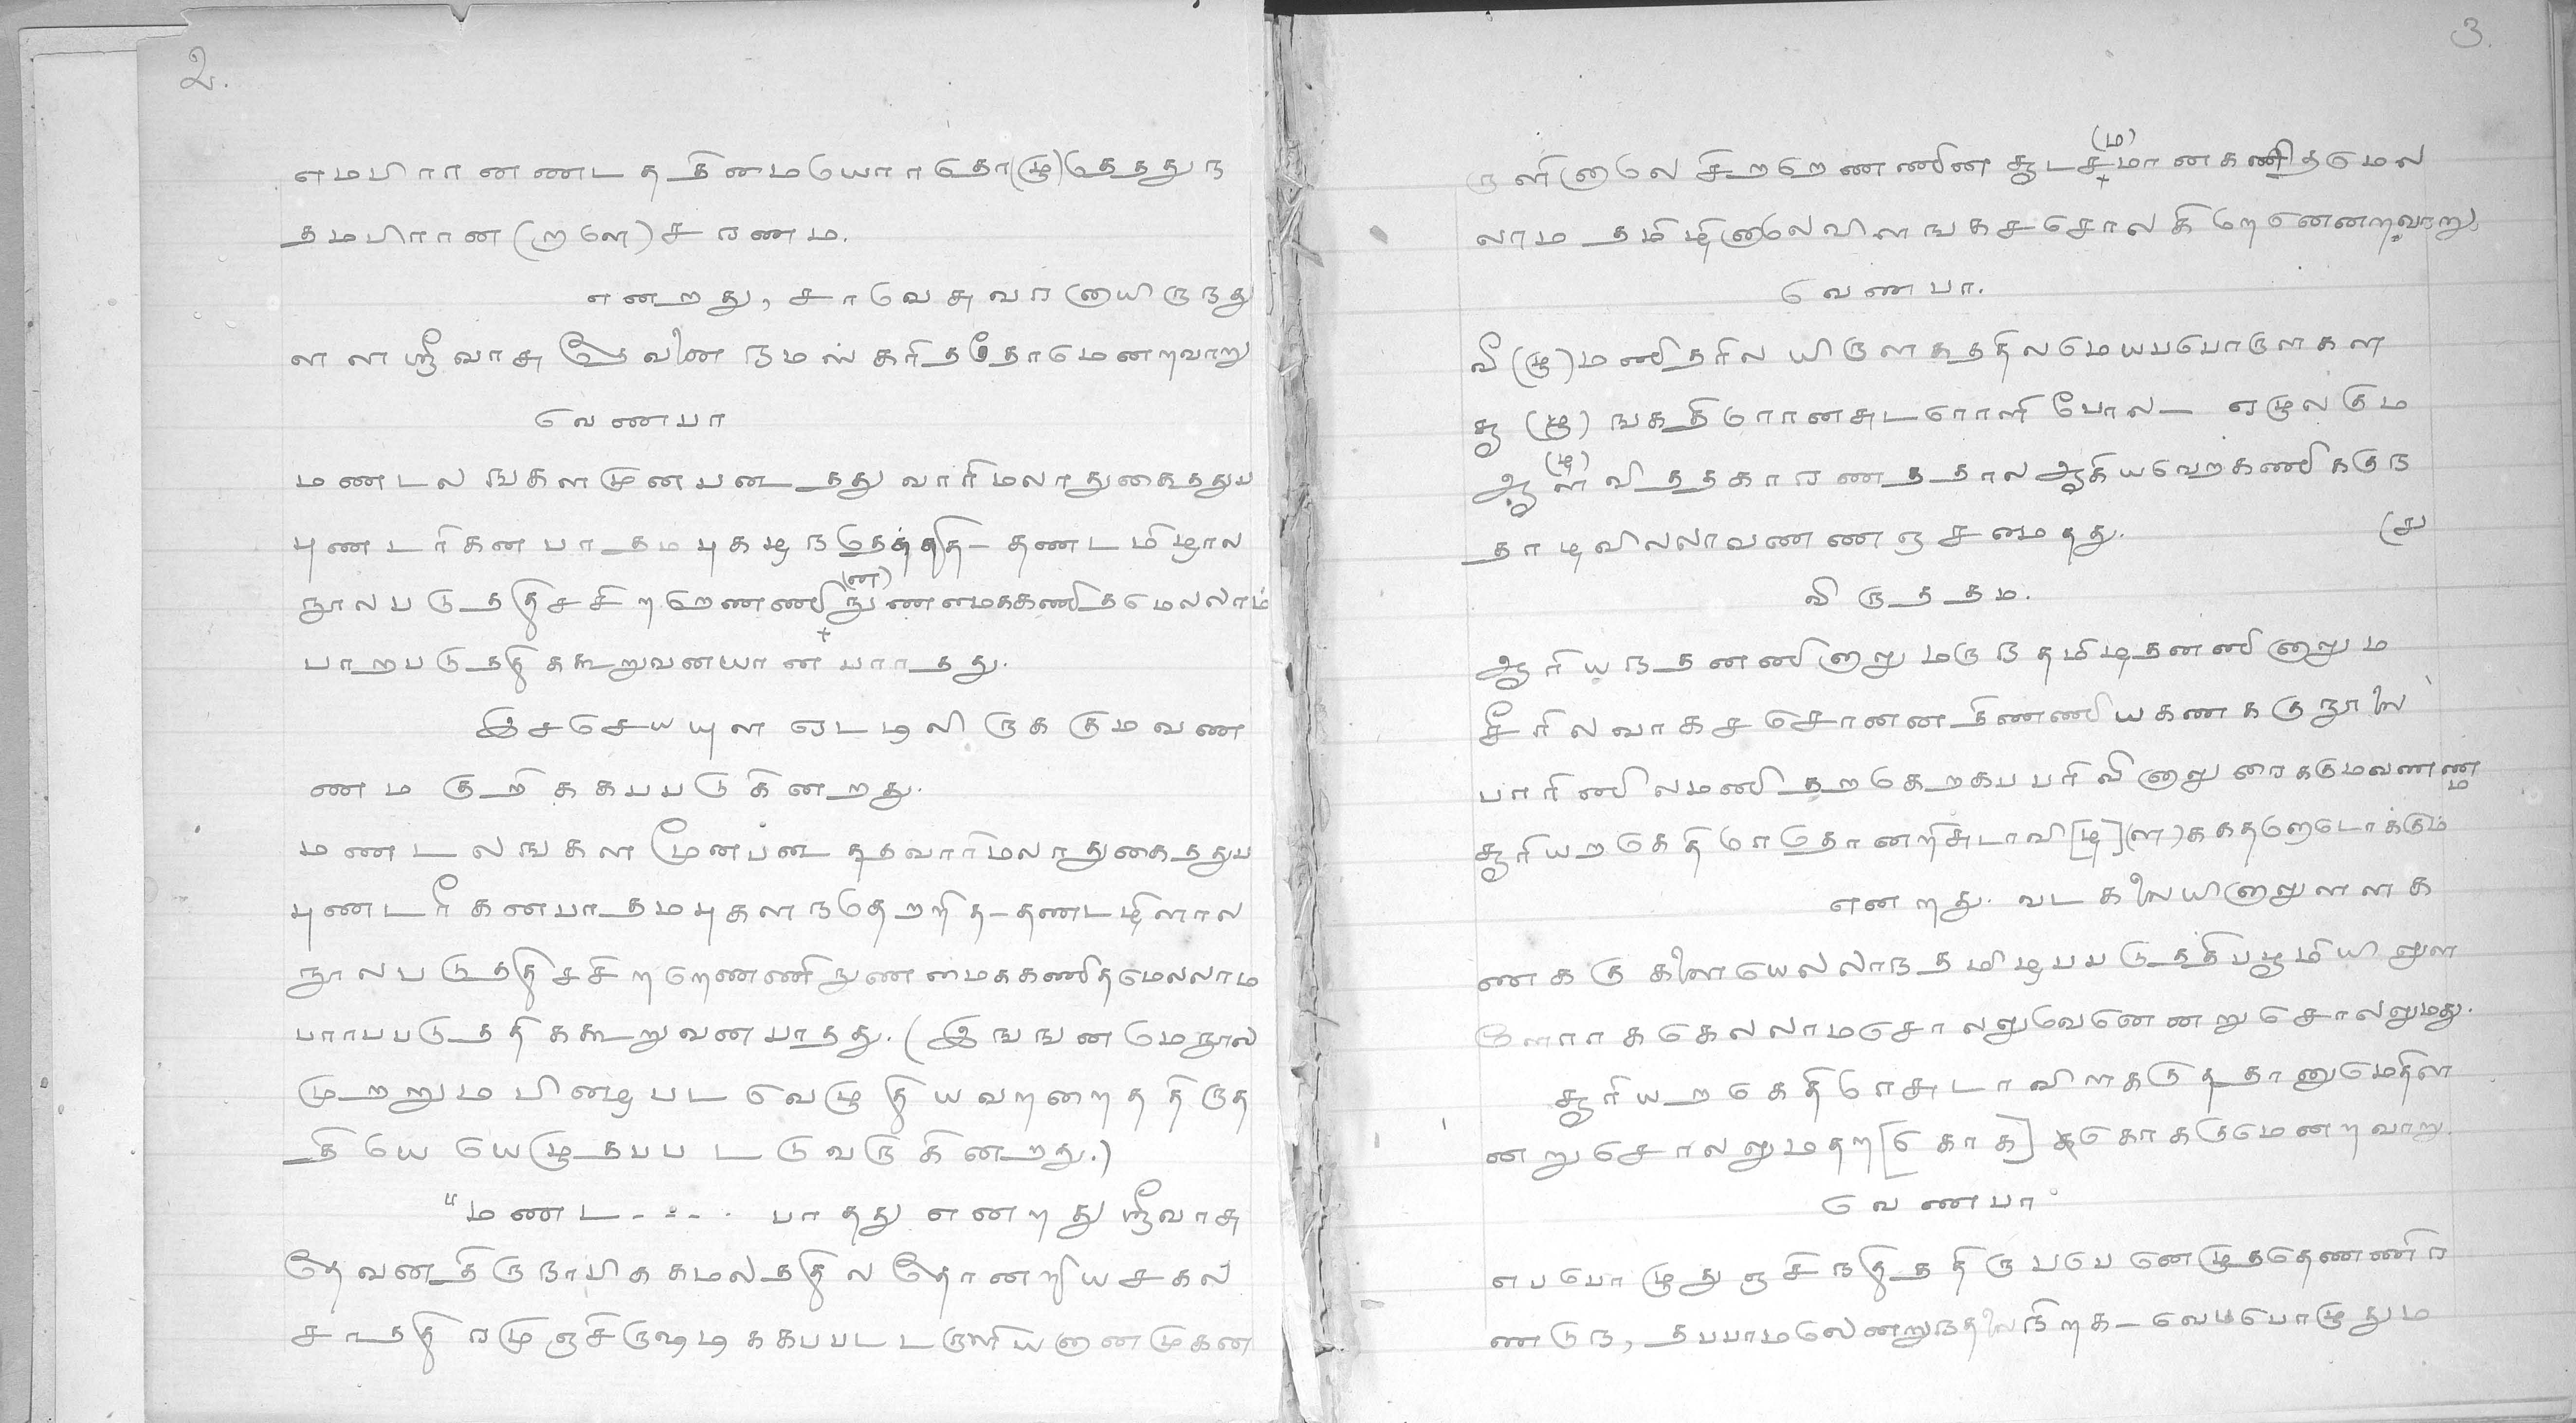 2.
எமபிரானணடததிமையோரதொ(ழு)தெதது ந
தமபிரான(றளெ)சரணம.
எனறது, சரவெசுவரனாயிருநது
ளளஸ்ரீவாசுதேவனை நமஸகரிததோமெனறவாறு
வெணபா
மணடலஙகளமுனபடைதது வாரிமலரதுகைததுப
புணடரிகன பாதமபுகழநதெததி- தணடமிழால
நூலபடுததிசசிறறெணணி(ன)நுணமைககணிதமெலலாம
பாறபடுததிககூறுவனயான பாரதது.
இசசெயயுள ஏடடிலிருககுமவண
ணம குறிககபபடுகினறது.
மணடலஙகள முனபடைததவாரிமலரதுகைததுப
புணடரீகனபாதமபுகளநதெறறித-தணடமிளால
நூலபடுததிசசிறறெணணிநுணமைககணிதமெலலாம
பாரபபடுததிககூறுவன பாதது. (இஙஙனமெநூல
முறறுமபிழைபடவெழுதியவறறைததிருத
தியெயெழுதபபடடுவருகினறது.)
"மணட-.-=-. பாதது எனறது ஸ்ரீவாசு
தேவனதிருநாபிககமலததில தோனறியசகல
சாததிரமுஞசிருஷடிககபபடடருளியனானமுகன
3.
ருளினாலெசிறறெணணின சூடச(ம)மானகணிதமெல
லாம தமிழினாலெவிளஙகசசொலகிறெனெனறவாறு
வெணபா.
வீ(ழு)மணிதரில யிருளகததிலமெயபபொருளகள
சூ(ழு)ஙகதிரொனசுடரொளி போல- ஏழுலகும
ஆ(ழி)ளவிததகாரணததால ஆகியவெறகணிககுந
தாழவிலலாவணணஞசமைதது. (சு
விருததம.
ஆரியநதனணினாறு மருநதமிழதனணினாறும
சீரிலவாகசசொனனதிணணியகணககுநூலை
பாரிணிலமணிதறகெறகபபரிவினாறுரைககுமவணணம
சூரியறகெதிரெதோனறிசுடரவி[ழ](ள)ககதறெடொககும
எனறது. வடகலையினாறுளளக
ணககுகளையெலலாநதமிழபபடுததிபபூமியிலுள
ளொரகககெலலாமசொலலுவெனெனறுசொலலுமது.
சூரியறகெதிரெசுடரவிளககுததானுமெதிள
னறுசொலலுமதற[கொக] ககொககுமெனறவாறு.
வெணபா
எபபொழுதுஞசிநதிததிருபபெனெழுததெணணிர
ணடுந, தபபாமலெனறுநதலைநிறக- வெபபொழுதும